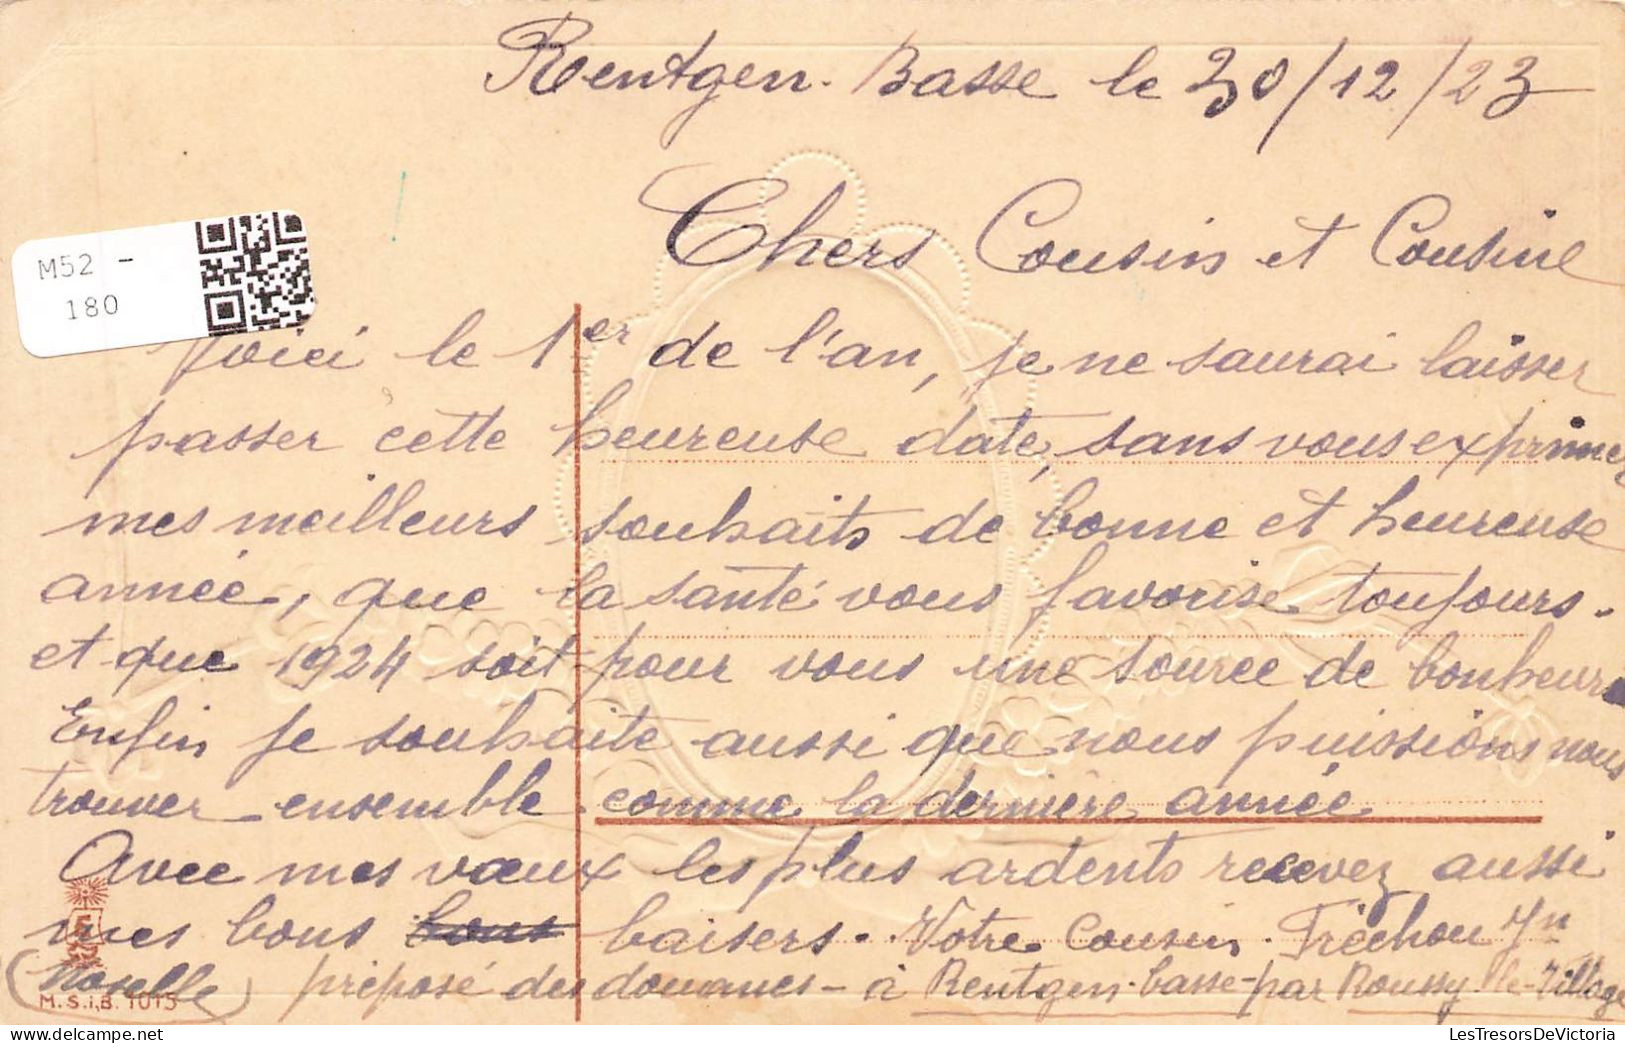 Rentgen-Basse le 30/12/23
Chers Cousin et Cousine
M52 -
180
Voici le 1er de l'an, je ne saurai laisser
passer cette heureuse date, sans vous exprimer
mes meilleurs souhaits de bonne et heureuse
année, que la santé vous favorise toujours.
et que 1924 soit pour vous une source de bonheur
Enfin je souhaite aussi que nous puissions nous
trouver ensemble comme la dernière année
Avec mes vœux les plus ardents recevez aussi
mes bons bons baisers. Votre Cousin. Tréchou Jn
(Moselle) préposé des douanes - à Rentgen-basse - par Roussy-le-Village
M.S.i.B. 1015
LesTresorsDeVictoria.com